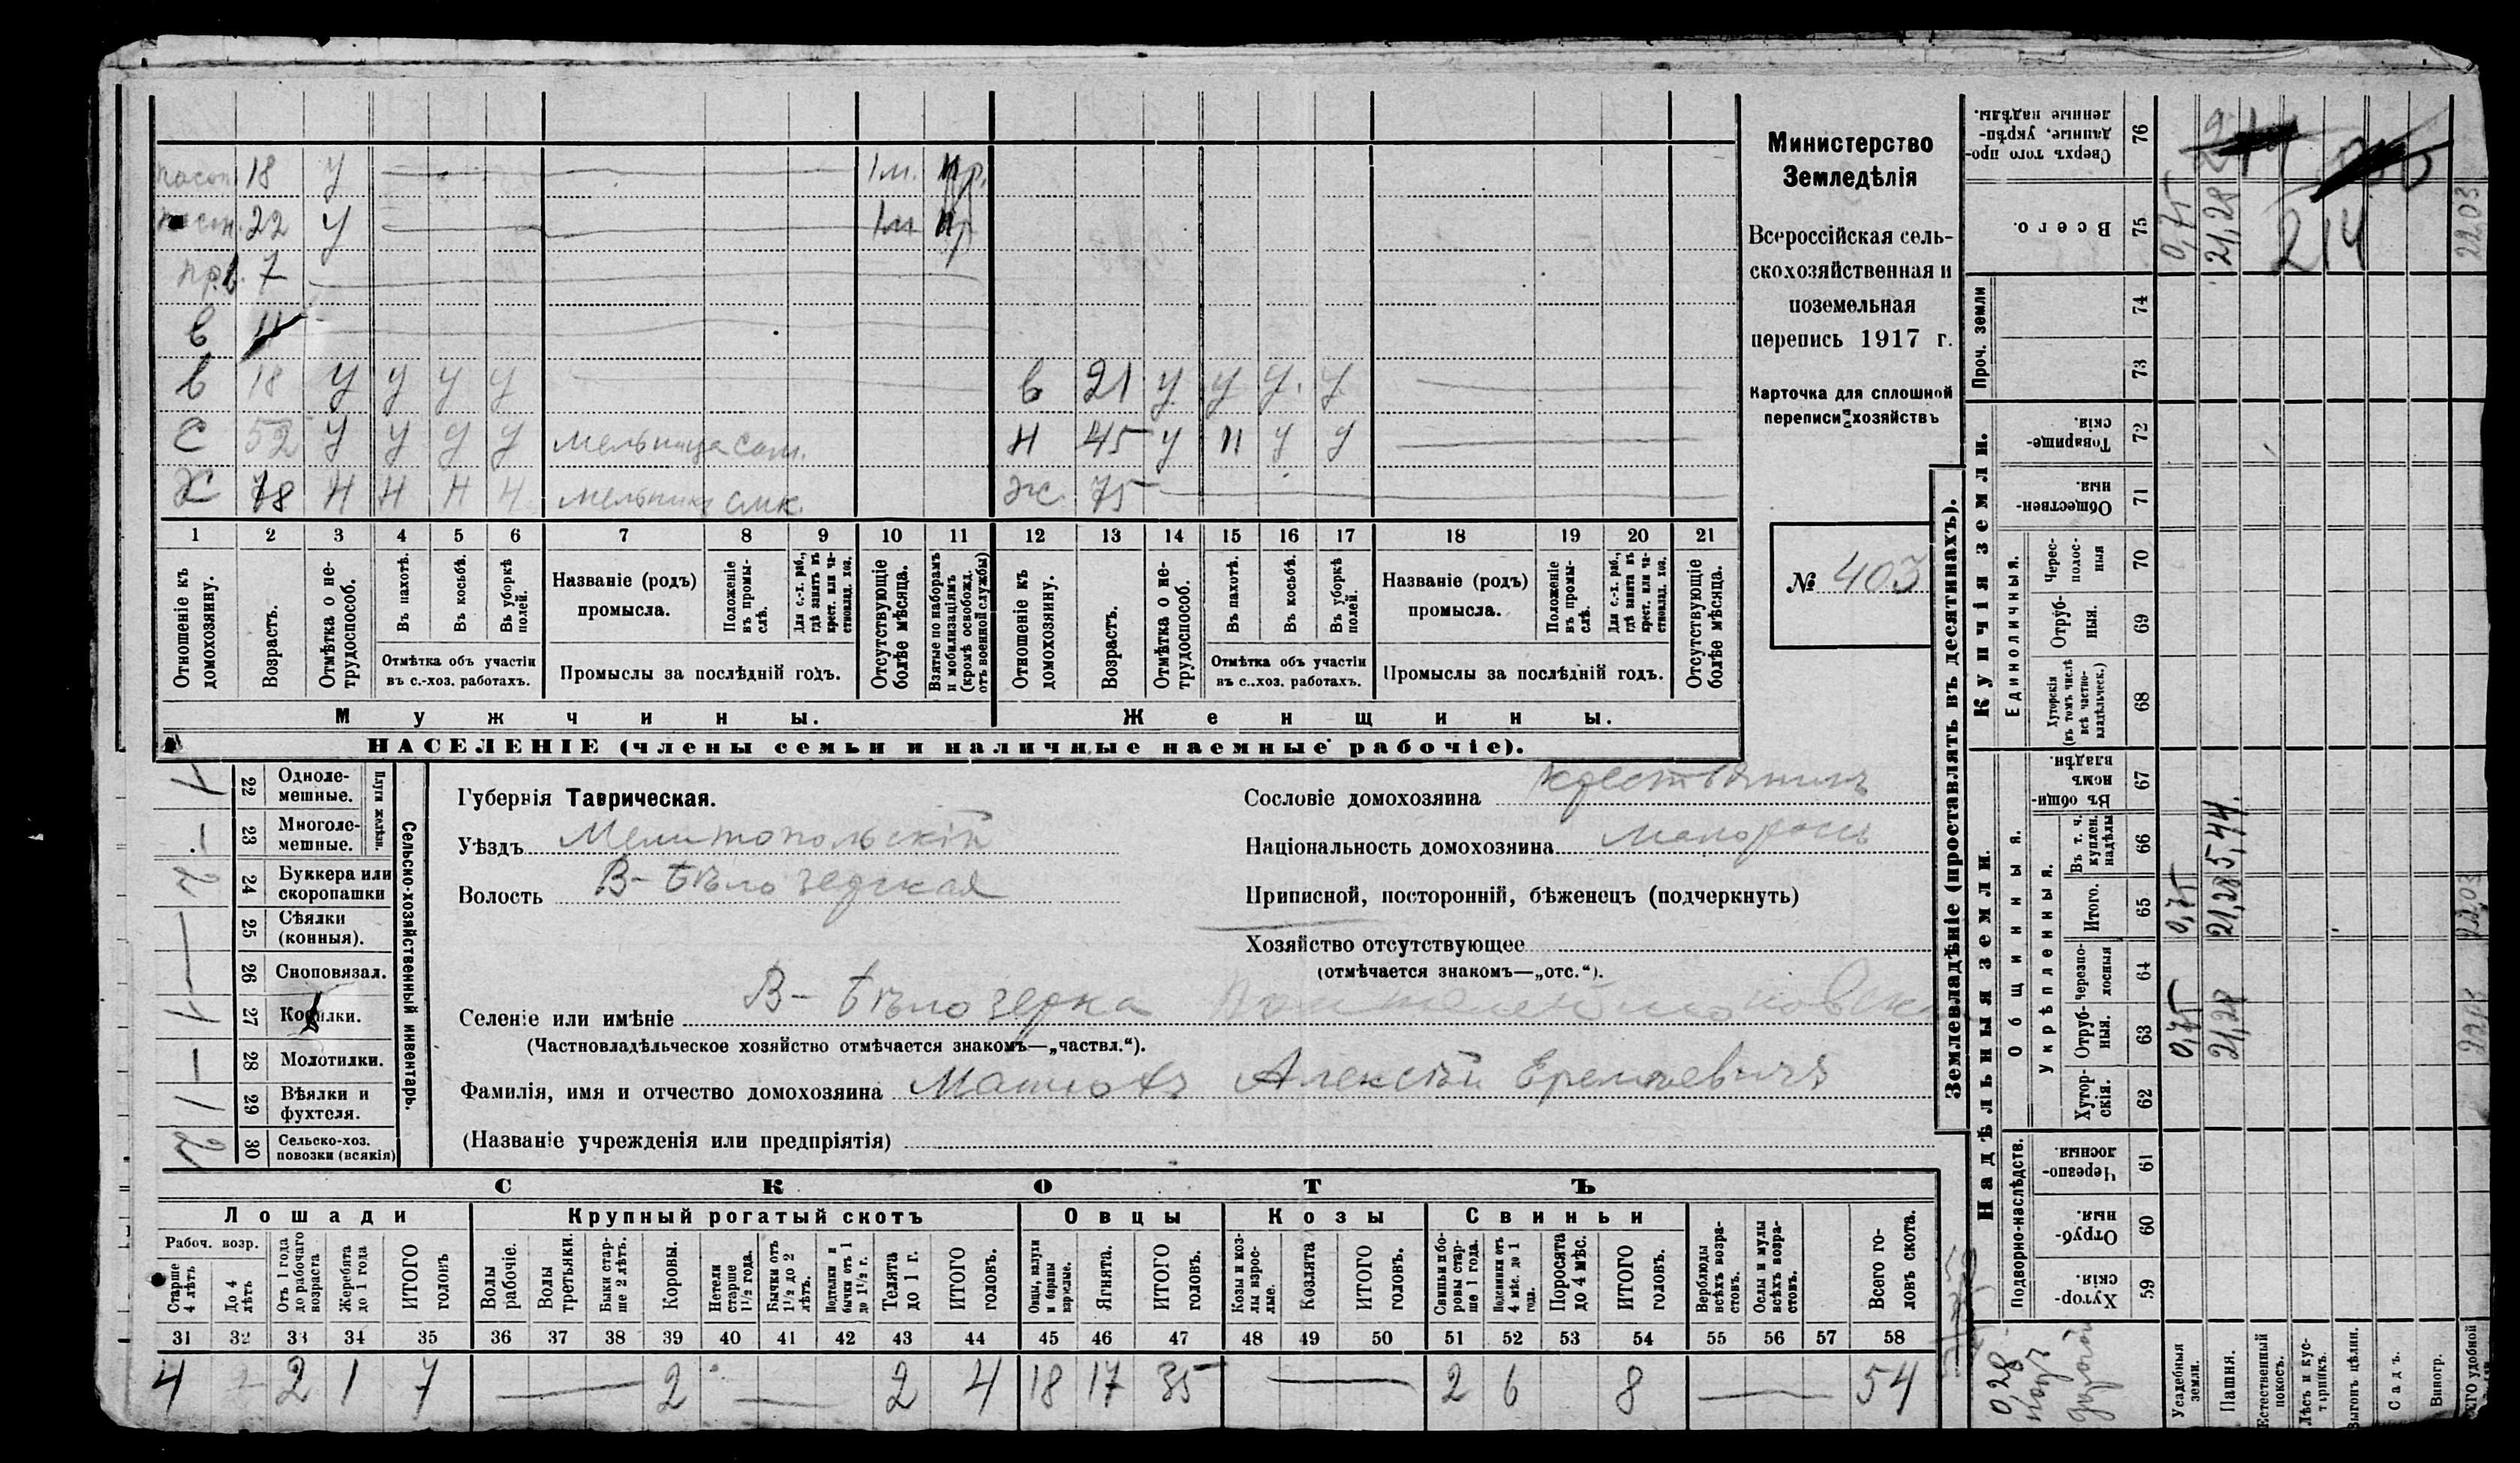 Министерство
Земледѣлія
Всероссійская сель-
скохозяйственная и
поземельная
перепись 1917 г.
Карточка для сплошной
переписи хозяйствъ
№ 403
18 У 1м. пр.
22 У 1м пр
7
в
в 18 У У У У в 21 У У У. У
С 52 У У У У мельница Н 45 У Н У У
Ж 78 Н Н Н Н Ж. 75
1 2 3 4 5 6 7 8 9 10 11 12 13 14 15 16 17 18 19 20 21
Отношеніе къ домохозяину.
Возрастъ.
Отмѣтка о не-трудоспособ.
Въ пахотѣ.
Въ косьбѣ.
Въ уборкѣ полей.
Отмѣтка объ участіи
въ с.-хоз. работахъ.
Названіе (родъ)
промысла.
Положеніе въ промы-слѣ.
Для с.-х. раб., гдѣ занятъ въ крест. или ча-стновлад. хоз.
Промыслы за послѣдній годъ.
Отсутствующіе болѣе мѣсяца.
Взятые по наборамъ и мобилизаціямъ (кромѣ освобожд. отъ военной службы)
Отношеніе къ домохозяину.
Возрастъ.
Отмѣтка о не-трудоспособ.
Въ пахотѣ.
Въ косьбѣ.
Въ уборкѣ полей.
Отмѣтка объ участіи
въ с.-хоз. работахъ.
Названіе (родъ)
промысла.
Положеніе въ промы-слѣ.
Для с.-х. раб., гдѣ занята въ крест. или ча-стновлад. хоз.
Промыслы за послѣдній годъ.
Отсутствующіе болѣе мѣсяца.
Мужчины.
Женщины.
НАСЕЛЕНІЕ (члены семьи и наличные наемные рабочіе).
Сельско-хозяйственный инвентарь.
Плуги желѣзн.
22 Одноле-мешные. 1
23 Многоле-мешные. —
24 Буккера или скоропашки 2
25 Сѣялки (конныя). —
26 Сноповязал.
27 Косилки. 1
28 Молотилки. —
29 Вѣялки и фухтеля. 1
30 Сельско-хоз. повозки (всякія) 2
Губернія Таврическая.
Уѣздъ Мелитопольскій
Волость В-Бѣлозерская
Сословіе домохозяина крестьянинъ
Національность домохозяина малороссъ
Приписной, посторонній, бѣженецъ (подчеркнуть)
Хозяйство отсутствующее
(отмѣчается знакомъ—„отс.“).
Селеніе или имѣніе В-Бѣлозерка
(Частновладѣльческое хозяйство отмѣчается знакомъ—„частвл.“).
Фамилія, имя и отчество домохозяина Алексѣй Еремѣевичъ
(Названіе учрежденія или предпріятія)
СКОТЪ
Лошади Крупный рогатый скотъ Овцы Козы Свиньи
Рабоч. возр.
Старше 4 лѣтъ
До 4 лѣтъ
Отъ 1 года до рабочаго возраста
Жеребята до 1 года
ИТОГО головъ
Волы рабочіе.
Волы третьяки.
Быки стар-ше 2 лѣтъ.
Коровы.
Нетели старше 1 1/2 года.
Бычки отъ 1 1/2 до 2 лѣтъ.
Подтелки и бычки отъ 1 до 1 1/2 г.
Телята до 1 г.
ИТОГО головъ.
Овцы, валухи и бараны взрослые.
Ягнята.
ИТОГО головъ.
Козы и коз-лы взрос-лые.
Козлята
ИТОГО головъ.
Свиньи и бо-ровы стар-ше 1 года.
Подсвинки отъ 4 мѣс. до 1 года.
Поросята до 4 мѣс.
ИТОГО головъ.
Верблюды всѣхъ возра-стовъ.
Ослы и мулы всѣхъ возра-стовъ.
Всего го-ловъ скота.
31 32 33 34 35 36 37 38 39 40 41 42 43 44 45 46 47 48 49 50 51 52 53 54 55 56 57 58
4 2 1 7 — 2 — 2 4 18 17 35 — 2 6 8 — 54
Землевладѣніе (проставлять въ десятинахъ).
Надѣльныя земли.
Купчія земли.
Проч. земли
Подворно-наслѣдств.
Общинныя.
Укрѣпленныя.
Единоличныя.
Сверхъ того про-данные, укрѣп-ленные надѣлы. 76
Всего. 75 0,75 21,28 214 2203
74
73
Товарище-скія. 72
Обществен-ныя. 71
Черес-полос-ныя 70
Отруб-ныя. 69
Хуторскія (въ томъ числѣ всѣ частно-владѣльческ.) 68
Въ общин-номъ владѣн. 67
Въ т. ч. куплен. надѣлы 66 5,44.
Итого. 65 0,75 21,28 2203
Черезпо-лосныя 64
Отруб-ныя. 63 0,75 21,28 2203
Хутор-скія. 62
Черезпо-лосныя. 61
Отруб-ныя. 60
Хутор-скія. 59
0,28
Усадебныя земли.
Пашня.
Естественный покосъ.
Лѣсъ и кус-тарникъ.
Выгонъ цѣлин.
Садъ.
Виногр.